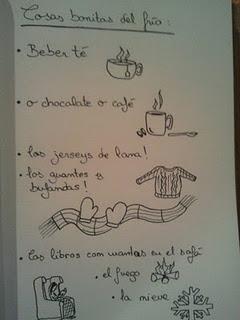 Cosas bonitas del frío:
• Beber té
• o chocolate o café
• los jerseys de lana!
• los guantes y
bufandas!
• los libros com mantas en el sofá
• el fuego
• la nieve